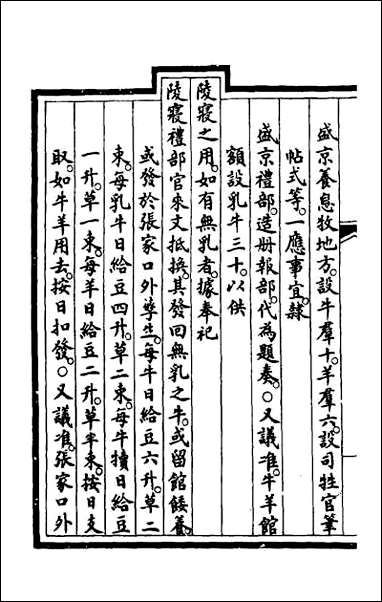 盛京養息牧地方。設牛羣十。羊羣六。設司牲官筆
帖式等。一應事宜。隸
盛京禮部。造册報部。代為題奏。○又議准。牛羊館
額設乳牛三十。以供
陵寢之用。如有無乳者。據奉祀
陵寢禮部官來文抵換。其發回無乳之牛。或留館餧養。
或發於張家口外孳生。每牛日給豆六升。草二
束。每乳牛日給豆四升。草二束。每牛犢日給豆
一升。草一束。每羊日給豆二升。草半束。按日支
取。如牛羊用去。按日扣發。○又議准。張家口外